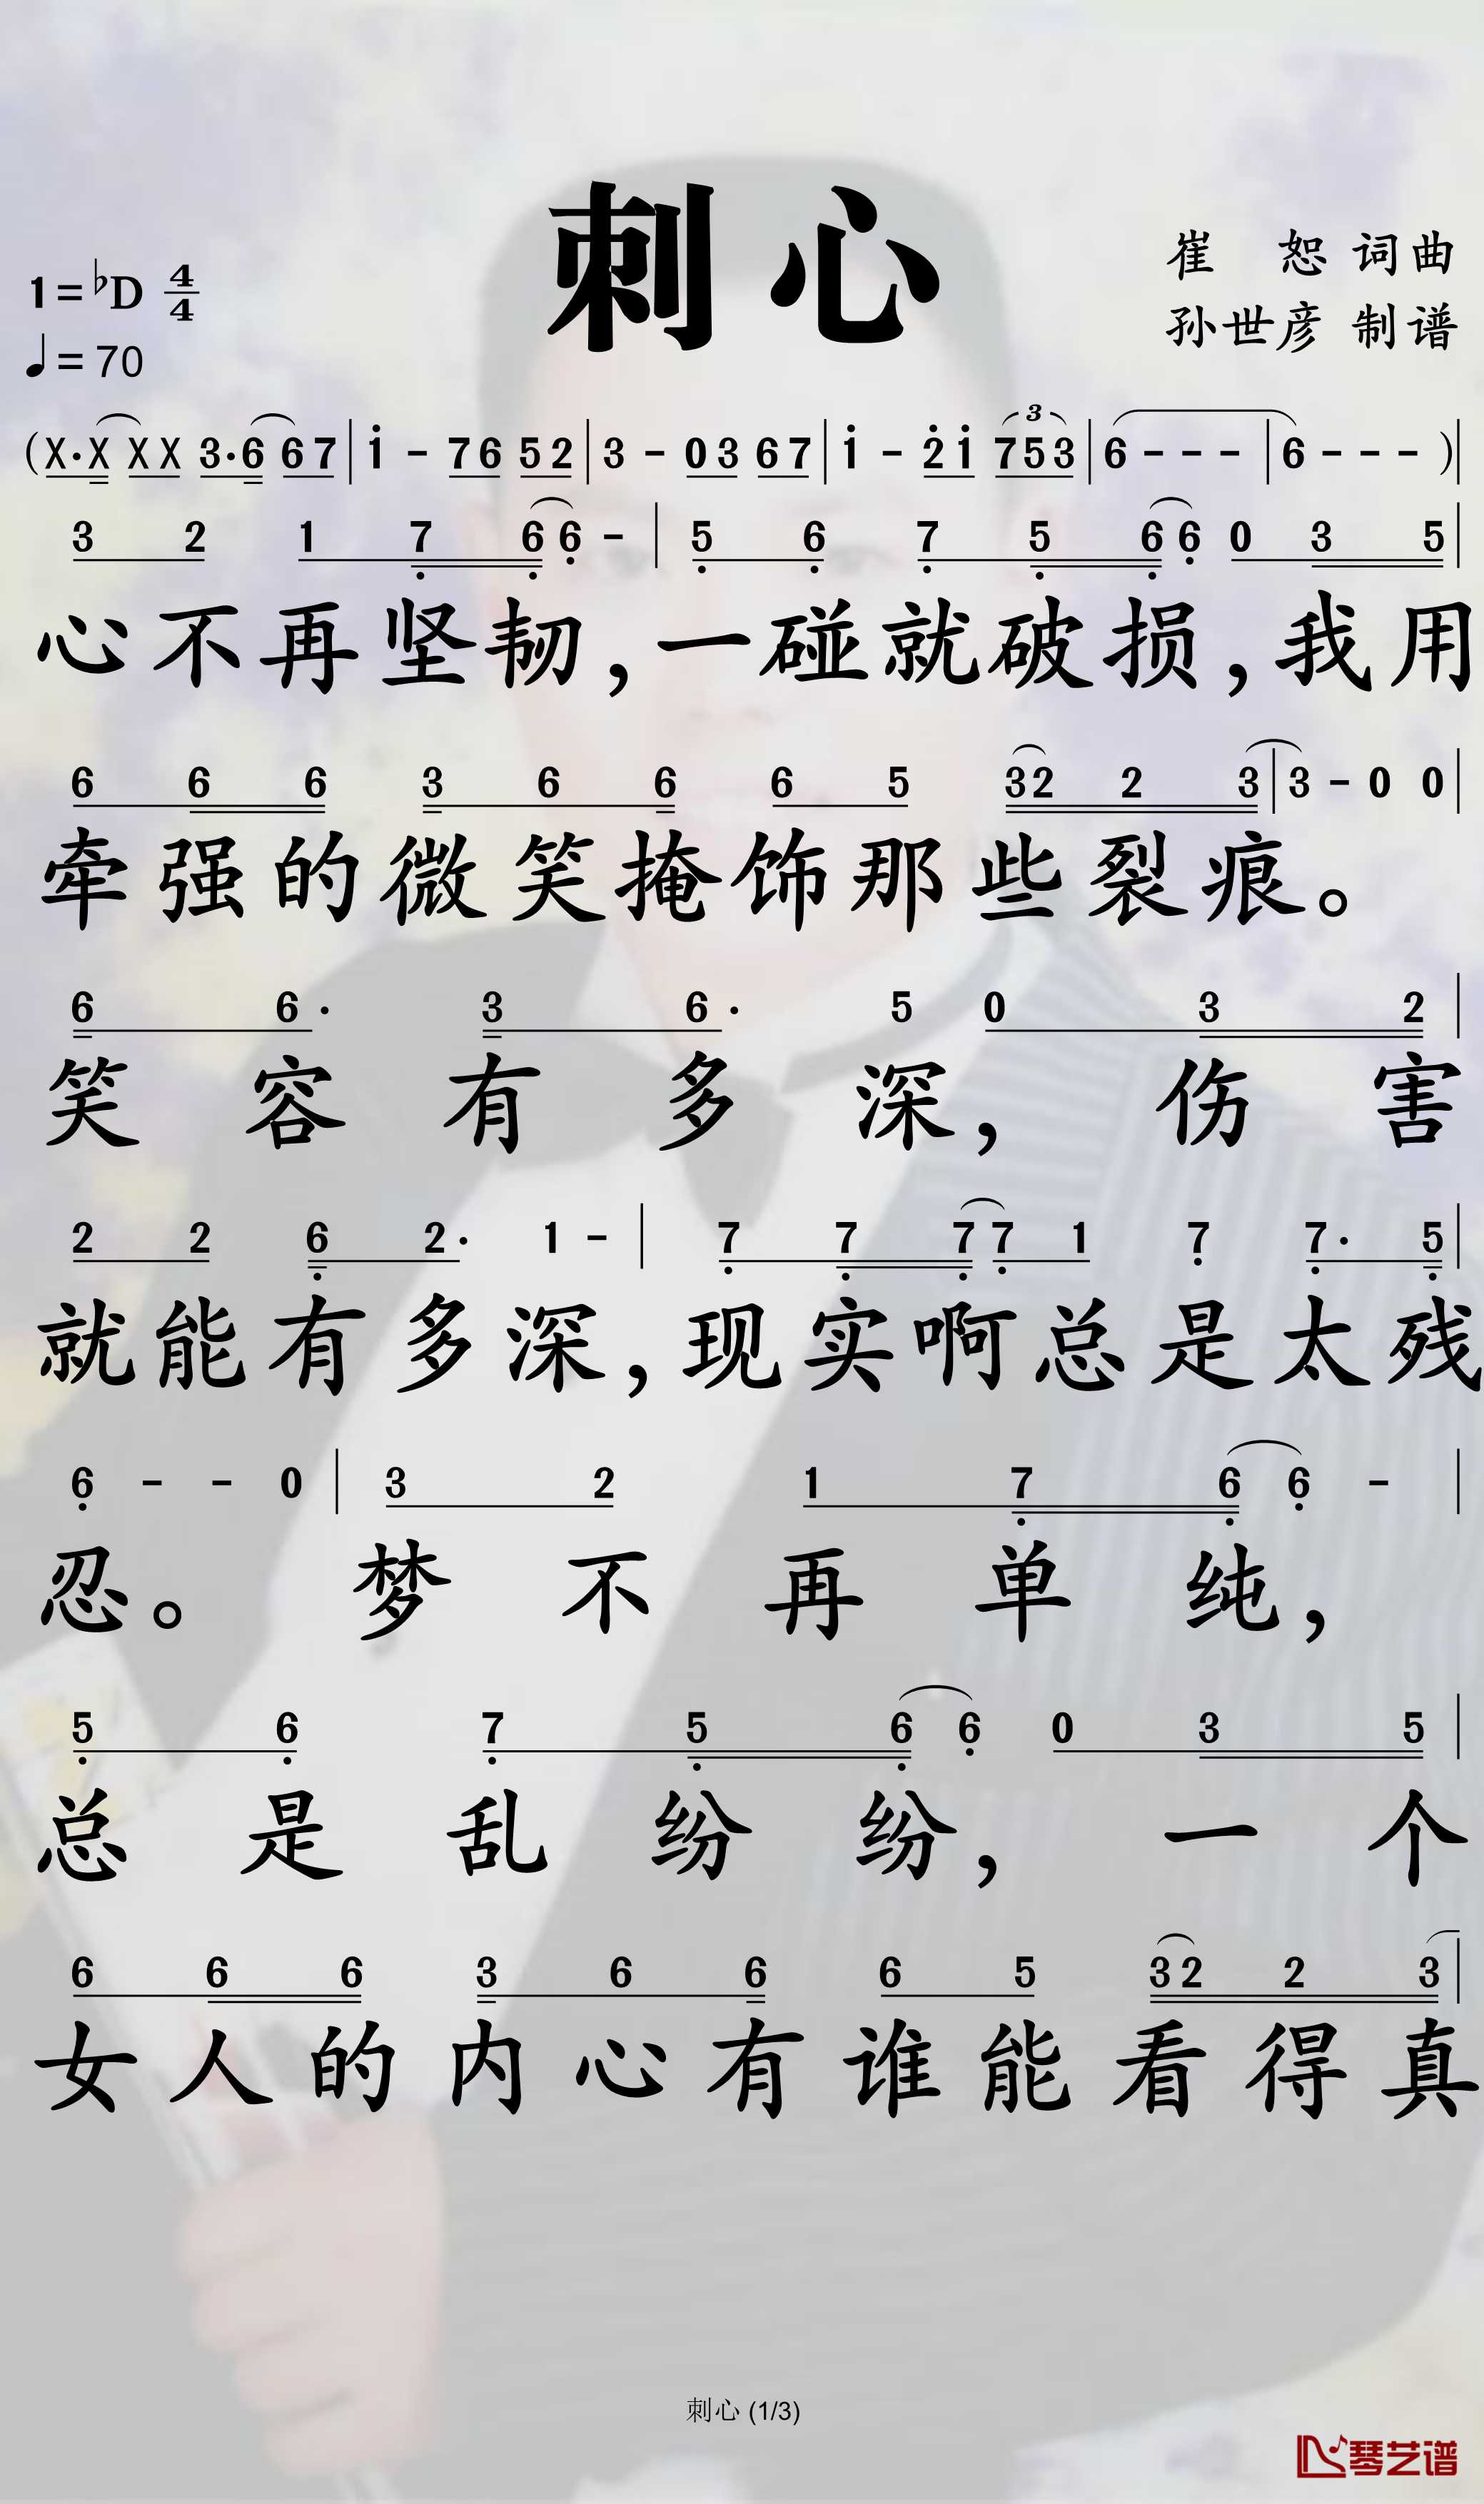 刺心
崔 恕 词曲
孙世彦 制谱
1=♭D 4/4
♩=70
(X·X XX 3·6 67 | 1 - 76 52 | 3 - 03 67 | 1 - 21 753 | 6 - - - | 6 - - - ) |
3 2 1 7 6 6 - | 5 6 7 5 6 6 0 3 5 |
心不再坚韧,一碰就破损,我用
6 6 6 3 6 6 6 5 32 2 3 | 3 - 0 0 |
牵强的微笑掩饰那些裂痕。
6 6· 3 6· 5 0 3 2 |
笑容有多深,伤害
2 2 6 2· 1 - | 7 7 7 7 1 7 7· 5 |
就能有多深,现实啊总是太残
6 - - 0 | 3 2 1 7 6 6 - |
忍。梦不再单纯,
5 6 7 5 6 6 0 3 5 |
总是乱纷纷,一个
6 6 6 3 6 6 6 5 32 2 3 |
女人的内心有谁能看得真
刺心 (1/3)
琴艺谱